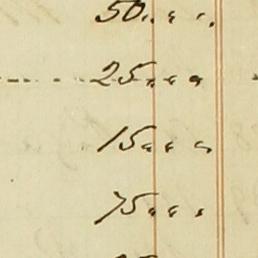 50 " " "
25 " " "
15 " " "
75 " " "